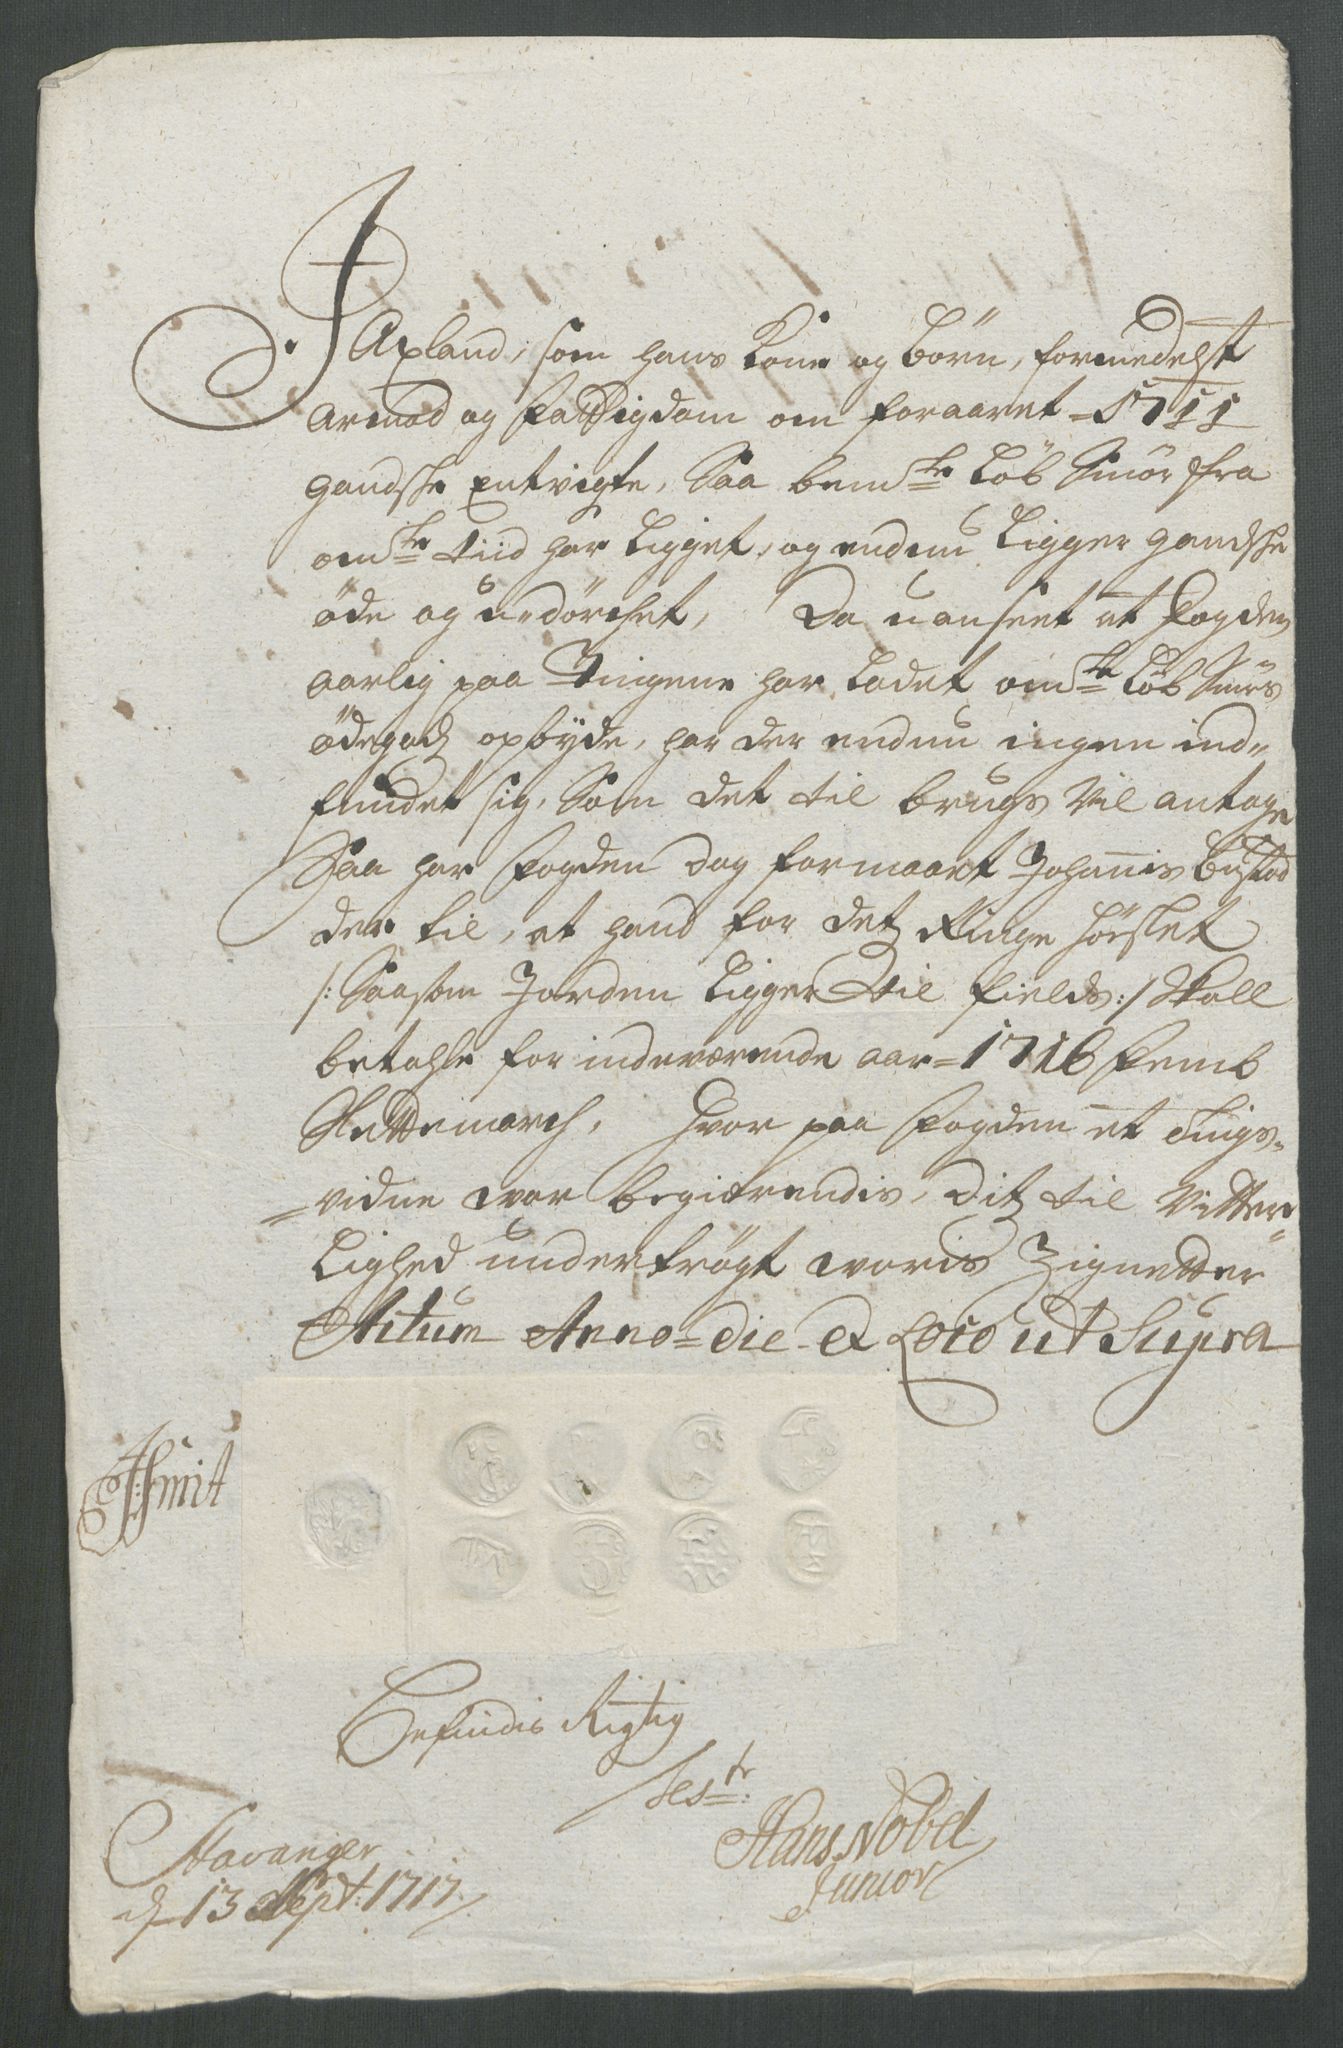 I
Axland, som hans Kone og Börn, formedelst
Armod og Fattigdom om foraaret = 1711
gandske Entvigte, Saa bemte Löb Smör fra
omte tiid har Ligget, og endnu Ligger gandske
öde og u-dörchet, Da uanseet at Fogden
aarlig paa Tingene har Ladet omte Löb Smörs
ödegods opbyde, har der endnu ingen ind-
fundet sig, Som det til brugs Vil antage
Saa har Fogden dog formaaet Johannis
der til, at hand for det Ringe höeslet
/: Saasom Jorden Ligger til fields :/ Skall
betahle for indeværende aar = 1716 Femb
Slettemarch, Hvor paa Fogden et Tings-
=vidne war begiærendis, dis til Vitter-
Lighed undertrögt woris Zignetter
Actum Anno- die- et Loco ut Supra
Smit
Befindis Rigtig
Test:
Hans Nobel
Junior
Stavanger
d 13 Sept: 1717